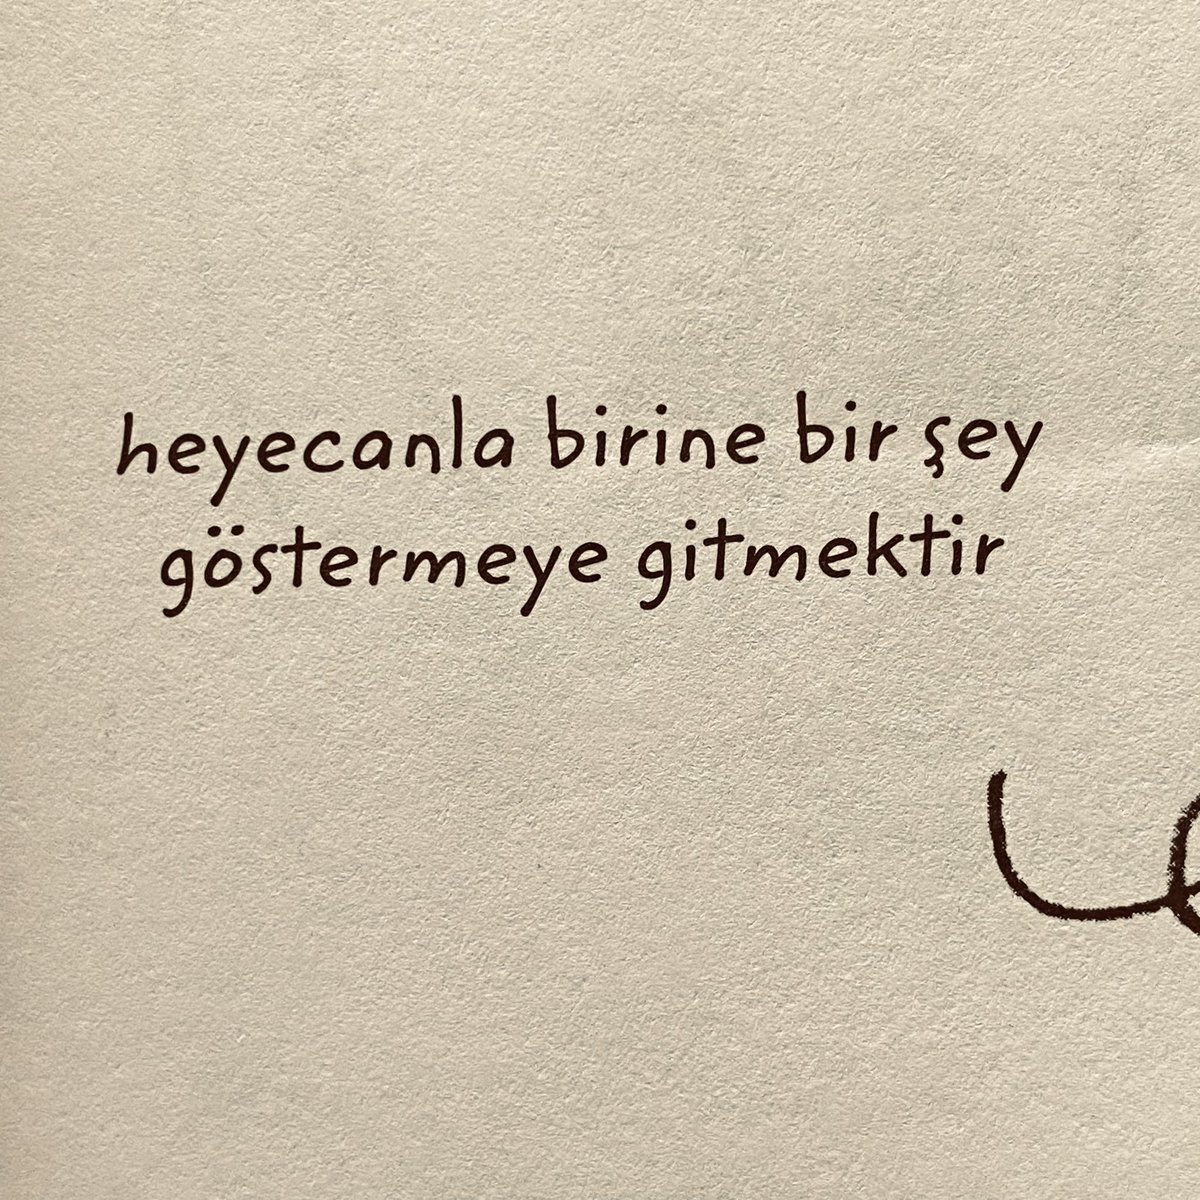 heyecanla birine bir şey
göstermeye gitmektir